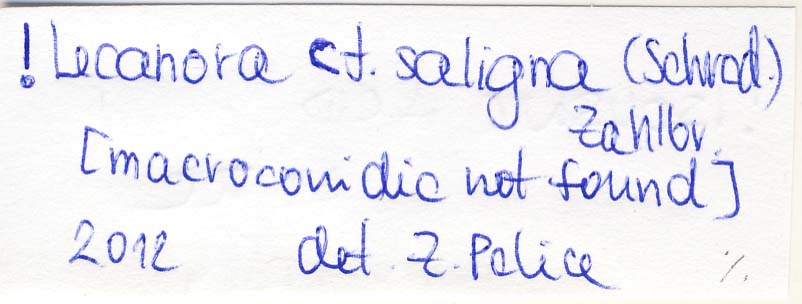 ! Lecanora cf. saligna (Schrad.)
Zahlbr.
[macroconidia not found]
2012 det. Z. Palice